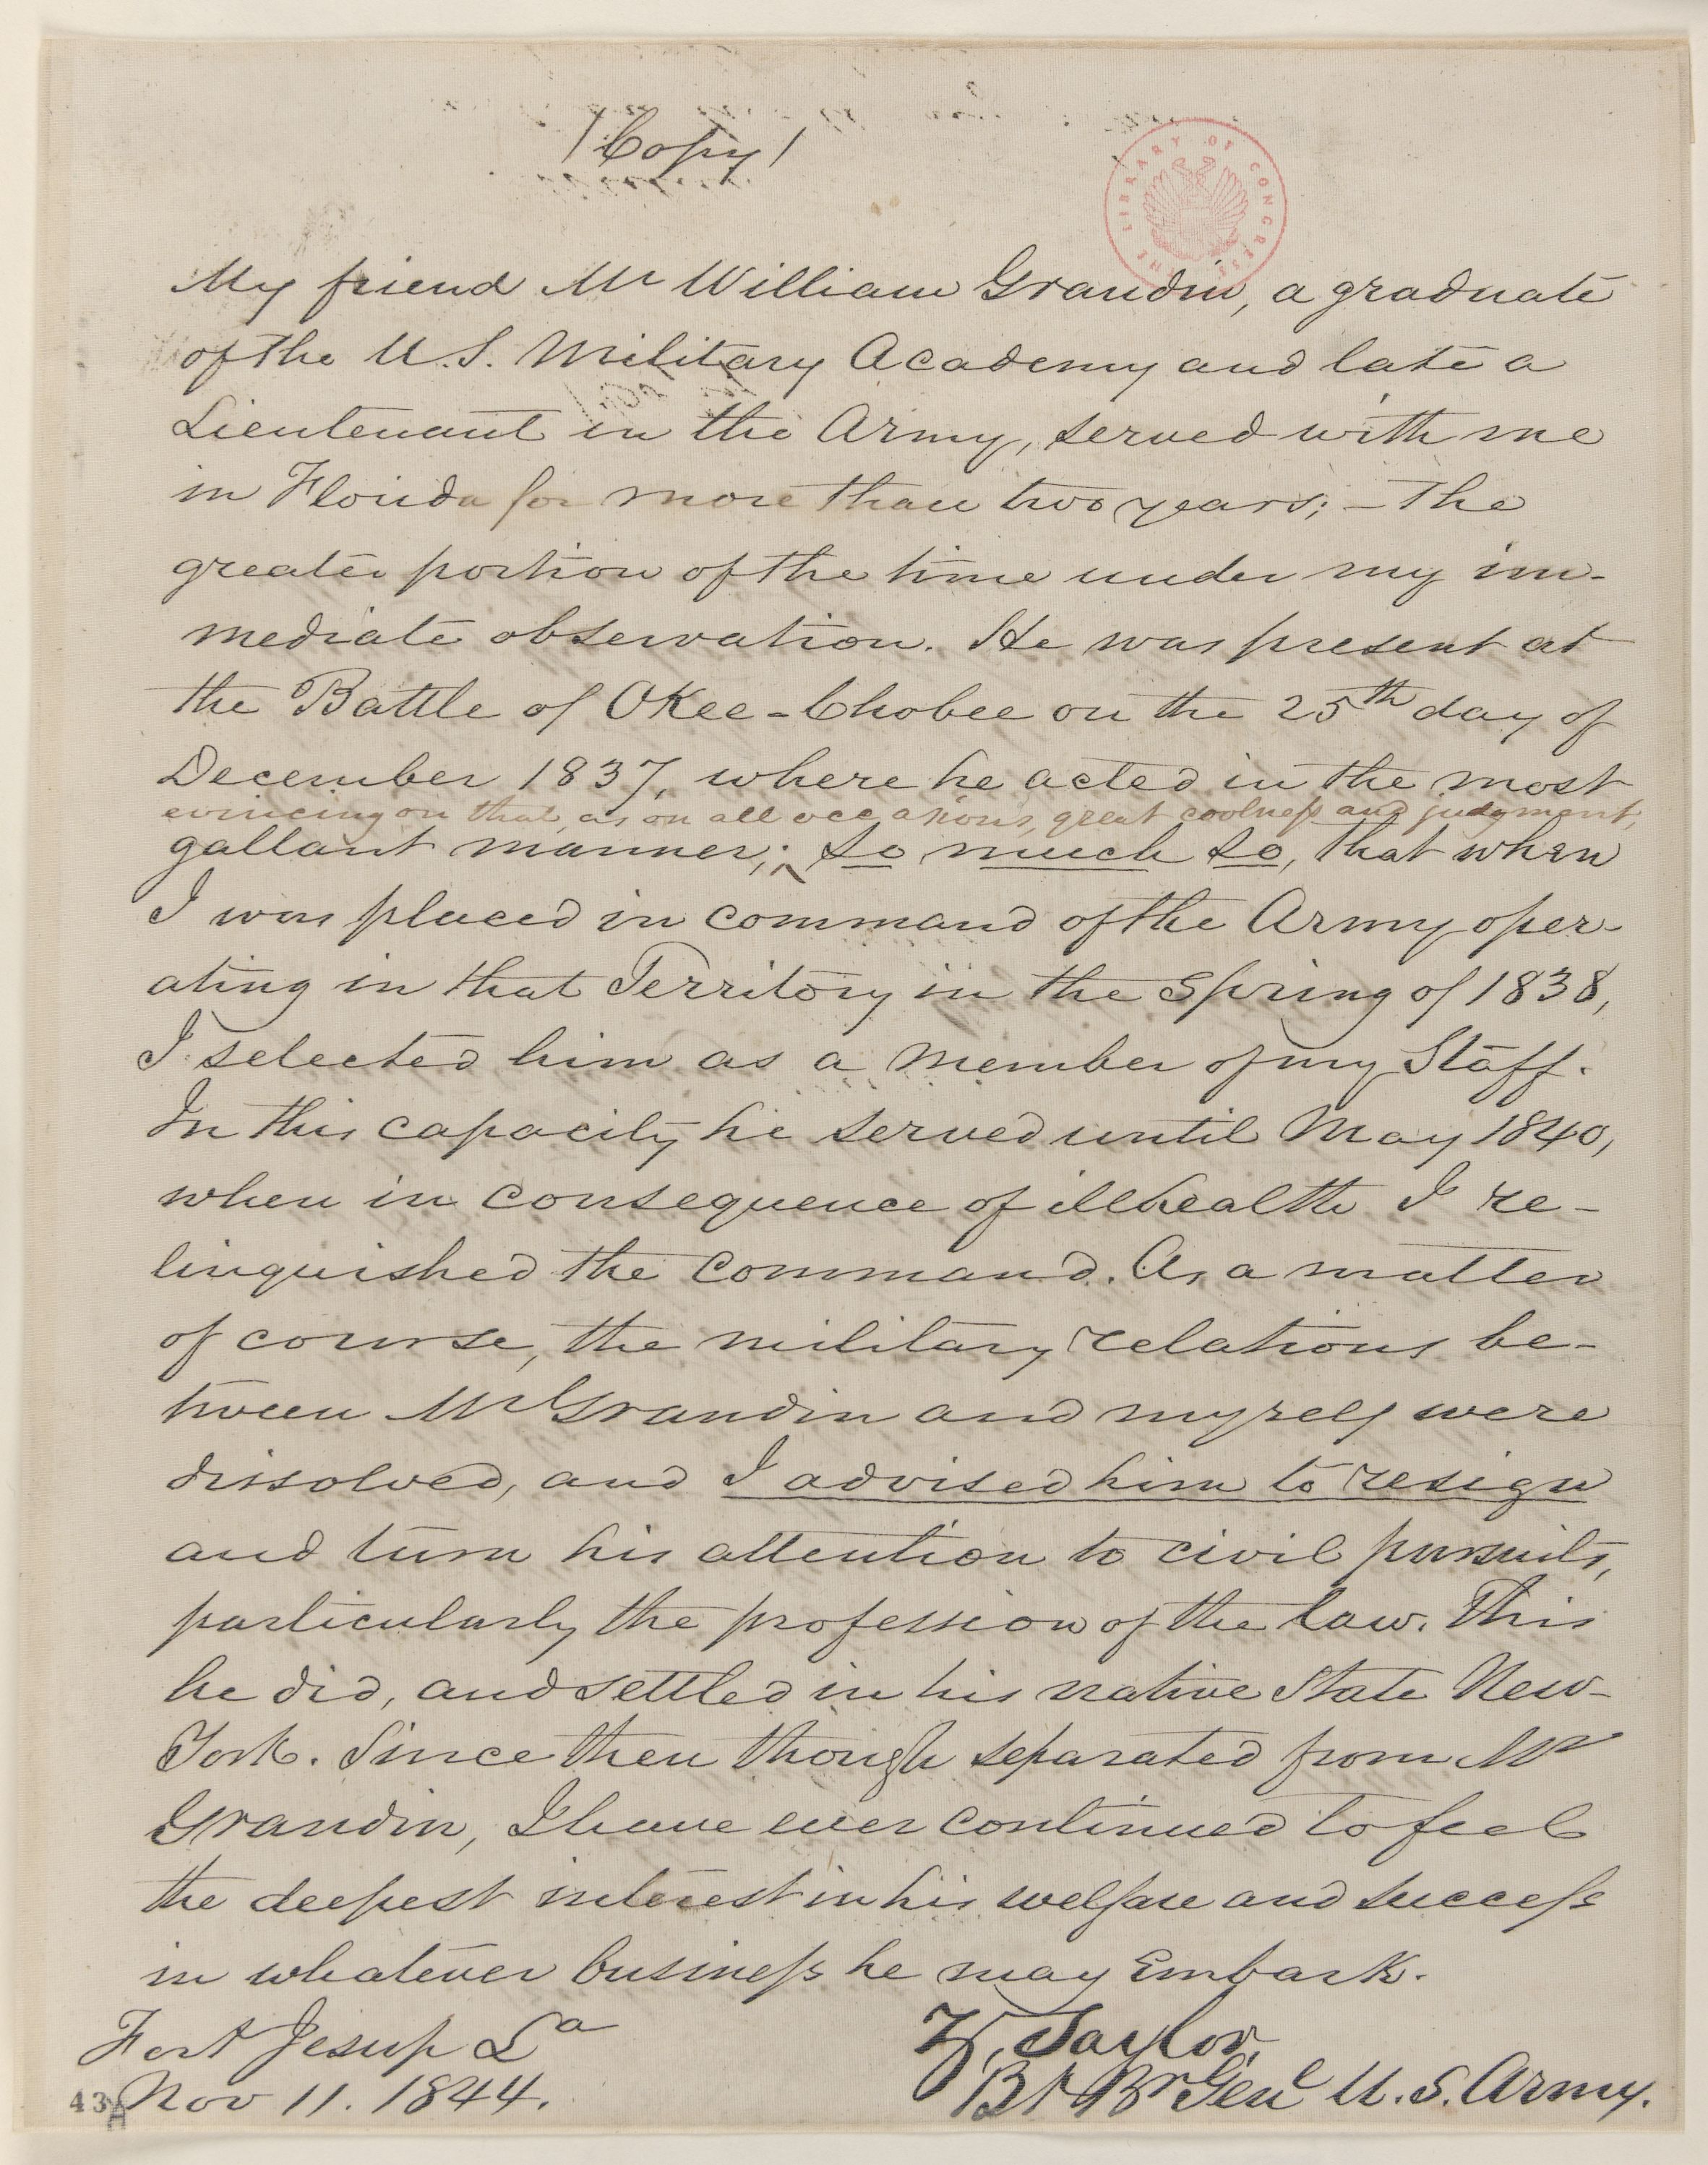 /Copy/
THE LIBRARY OF CONGRESS
My friend Mr William Grandin, a graduate
of the U.S. Military Academy and late a
Lieutenant in the Army, served with me
in Florida for more than two years; – the
greater portion of the time under my im-
mediate observation. He was present at
the Battle of OKee-Chobee on the 25th day of
December 1837, where he acted in the most
evincing on that, as on all occasions, great coolness and judgment,
gallant manner; ^ so much so, that when
I was placed in command of the Army oper-
ating in that Territory in the Spring of 1838,
I selected him as a member of my Staff.
In this capacity he served until May 1840,
when in consequence of illhealth I re-
linquished the command. As a matter
of course, the military relations be-
tween Mr Grandin and myself were
dissolved, and I advised him to resign
and turn his attention to civil pursuits,
particularly the profession of the law. This
he did, and settled in his native State New-
York. Since then though separated from Mr
Grandin, I have ever continued to feel
the deepest interest in his welfare and success
in whatever business he may Embark.
Z. Taylor,
Bt Br Genl U.S. Army.
Fort Jesup La
Nov 11. 1844.
43A